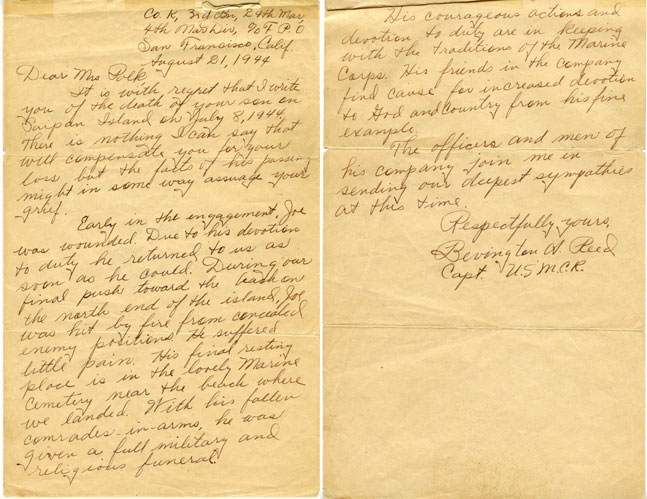 Co. K, 3rd Bn, 24th Mar,
4th Mar Div, % F.P.O
San Francisco, Calif
August 21, 1944
Dear Mrs Polk,
It is with regret that I write
you of the death of your son on
Saipan Island on July 8, 1944.
There is nothing I can say that
will compensate you for your
loss but the facts of his passing
might in some way assuage your
grief.
Early in the engagement, Joe
was wounded. Due to his devotion
to duty he returned to us as
soon as he could. During our
final push toward the beach on
the north end of the island, Joe
was hit by fire from concealed
enemy positions. He suffered
little pain. His final resting
place is in the lovely Marine
Cemetery near the beach where
we landed. With his fallen
comrades-in-arms, he was
given a full military and
religious funeral.
His courageous actions and
devotion to duty are in keeping
with the traditions of the Marine
Corps. His friends in the company
find cause for increased devotion
to God and Country from his fine
example.
The officers and men of
his company join me in
sending our deepest sympathies
at this time.
Respectfully yours,
Bevington A Reed
Capt. U.S.M.C.R.